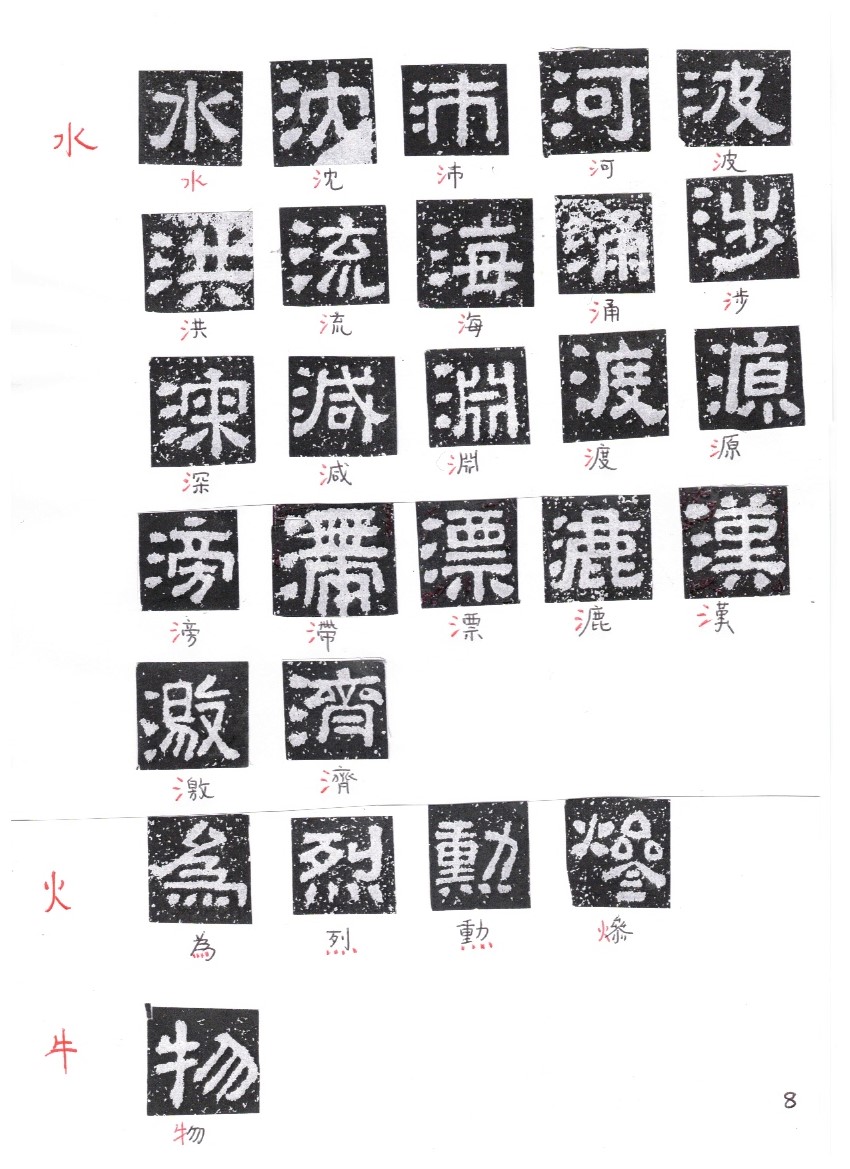 水
水 沈 沛 河 波
水 沈 沛 河 波
洪 流 海 涌 涉
洪 流 海 涌 涉
深 減 淵 渡 源
深 減 淵 渡 源
滂 滯 漂 漉 漢
滂 滯 漂 漉 漢
激 濟
激 濟
火
為 烈 勳 燦
為 烈 勳
牛
物
物
8